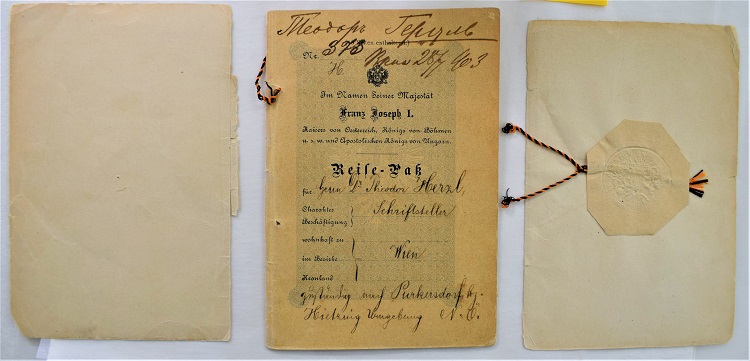 Теодоръ Герцль
Nr. 373
H.
Im Namen Seiner Majestät
Franz Joseph I.
Kaisers von Oesterreich, Königs von Böhmen
u. s. w. und Apostolischen Königs von Ungarn.
Reise-Paß
für Herrn Dr Theodor Herzl,
Charakter Schriftsteller
Beschäftigung
wohnhaft zu
im Bezirke Wien
Kronland
zuständig nach Purkersdorf, Bz.
Hietzing Umgebung N. Ö.